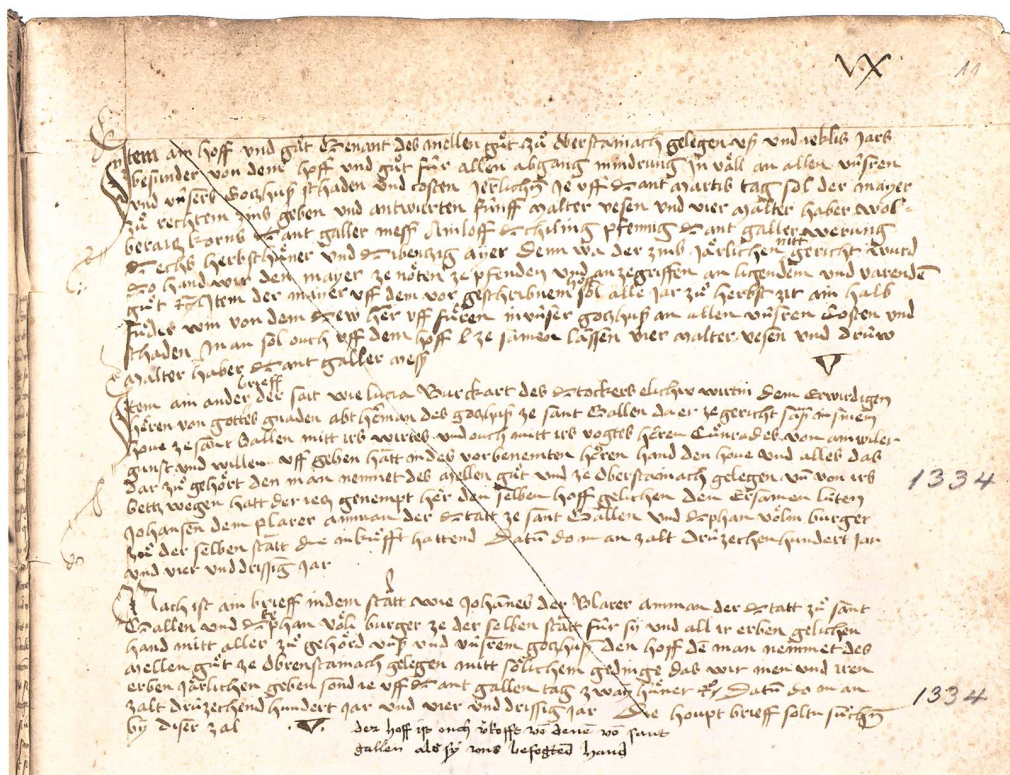 VX
11
Item ain hoff und guͦt genant des mellen guͦt zuͦ Oberstainach gelegen uß und ieklis Jars
besunder von dem hoff und guͦt fuͤr allen abgang mindrung in väll an allen unsren
und unsers Gotzhuß schaden und costen Jerlichen Je uff Sant Martis tag sol der mayer
zuͦ rechtem zins geben und antwirten fuͤnff malter vesen und vier malter haber wol-
beraitz korns Sant galler mess Ainloff Schiling pfennig Sant galler werung
Sechs herbsthuͤner und Sibentzig ayer denn wa der zins Järlichen nitt gericht Wurd
So hand wir den mayer ze nöten ze pfenden und anzegriffen an ligendem und varendem
guͦt Item der mayer uff dem vor geschribnem hoff sol alle Jar zuͦ herbst zit ain halb
fuͦder win von dem See her uff fuͤren in unser gotzhuß an allen unsren Costen und
schaden Man sol ouch uff dem hoff ze samen lassen vier malter vesen und druͤw
Malter haber Sant galler mess
Item ain ander brieff der sait wie lucia Burckart des Stockers elichw wirtin dem Erwirdigen
heren von gottes gnaden abt herman des gotzhuß ze sant Gallen da er ze gericht saß in sinem
houe ze sant Gallen mitt irs wirtes und ouch mitt irs vogtes heren Cuͦnrades von ainwiler
gunst und willen uff geben hatt in des vorbenemten heren hand den houe und alles das
dar zuͦ gehört den man nemnet des Mellen guͦt und ze Oberstainach gelegen und von irs
1334
bett wegen hatt der ietz genempt her den selben hoff gelichen den Ersamen luͤten
Johansen dem plarer amman der Statt ze sant Gallen und Stephan völin burger
zuͦ der selben statt die in kräfft hattend Datum do man zalt druͤzechenhundert Jar
und vier und drissig Jar
Nach ist ain brieff in dem statt wie Johannes der Blarer amman der Statt zuͦ sant
Gallen und Stephan Völi burger ze der selben statt fuͤr sy und all ir erben gelichen
hand mitt aller zuͦ gehörd uns und unsrem gotzhuß den hoff de man nemmet des
Mellen guͦt ze obrenstainach gelegen mitt sölichem gedinge das wir inen und iren
erben Järlichen geben sond ie uff Sant gallen tag zway huͤner Datum do man
1334
zalt druͤzechend hundert Jar und vier und drissig Jar Die houpt brieff soltu suͦchen
by diser zal
der hoff ist ouch verkofft von denen von sant
gallen als sy uns besogten hand